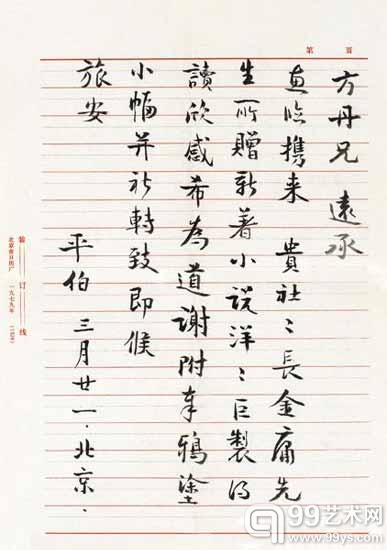 第 頁
方丹兄 遠承
惠临携来 貴社〻長金庸先
生所贈新著小説洋〻巨製乃
讀欣感希為道謝附奉鴉塗
小幅并祈轉致即候
旅安
平伯 三月廿一·北京·
装订线
一九七九年
99艺术网
www.99ys.com